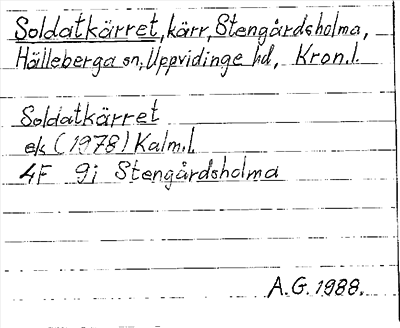 Soldatkärret, kärr, Stengårdsholma,
Hälleberga sn, Uppvidinge hd, Kron.l.
Soldatkärret
ek (1978) Kalm.l.
4F 9i Stengårdsholma
A.G. 1988.